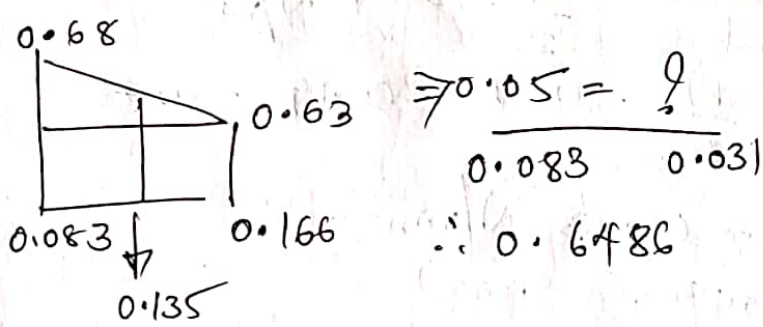 0.68
0.63
0.083
0.166
0.135
⇒ 0.05 = ?
0.083 0.031
∴ 0.6486